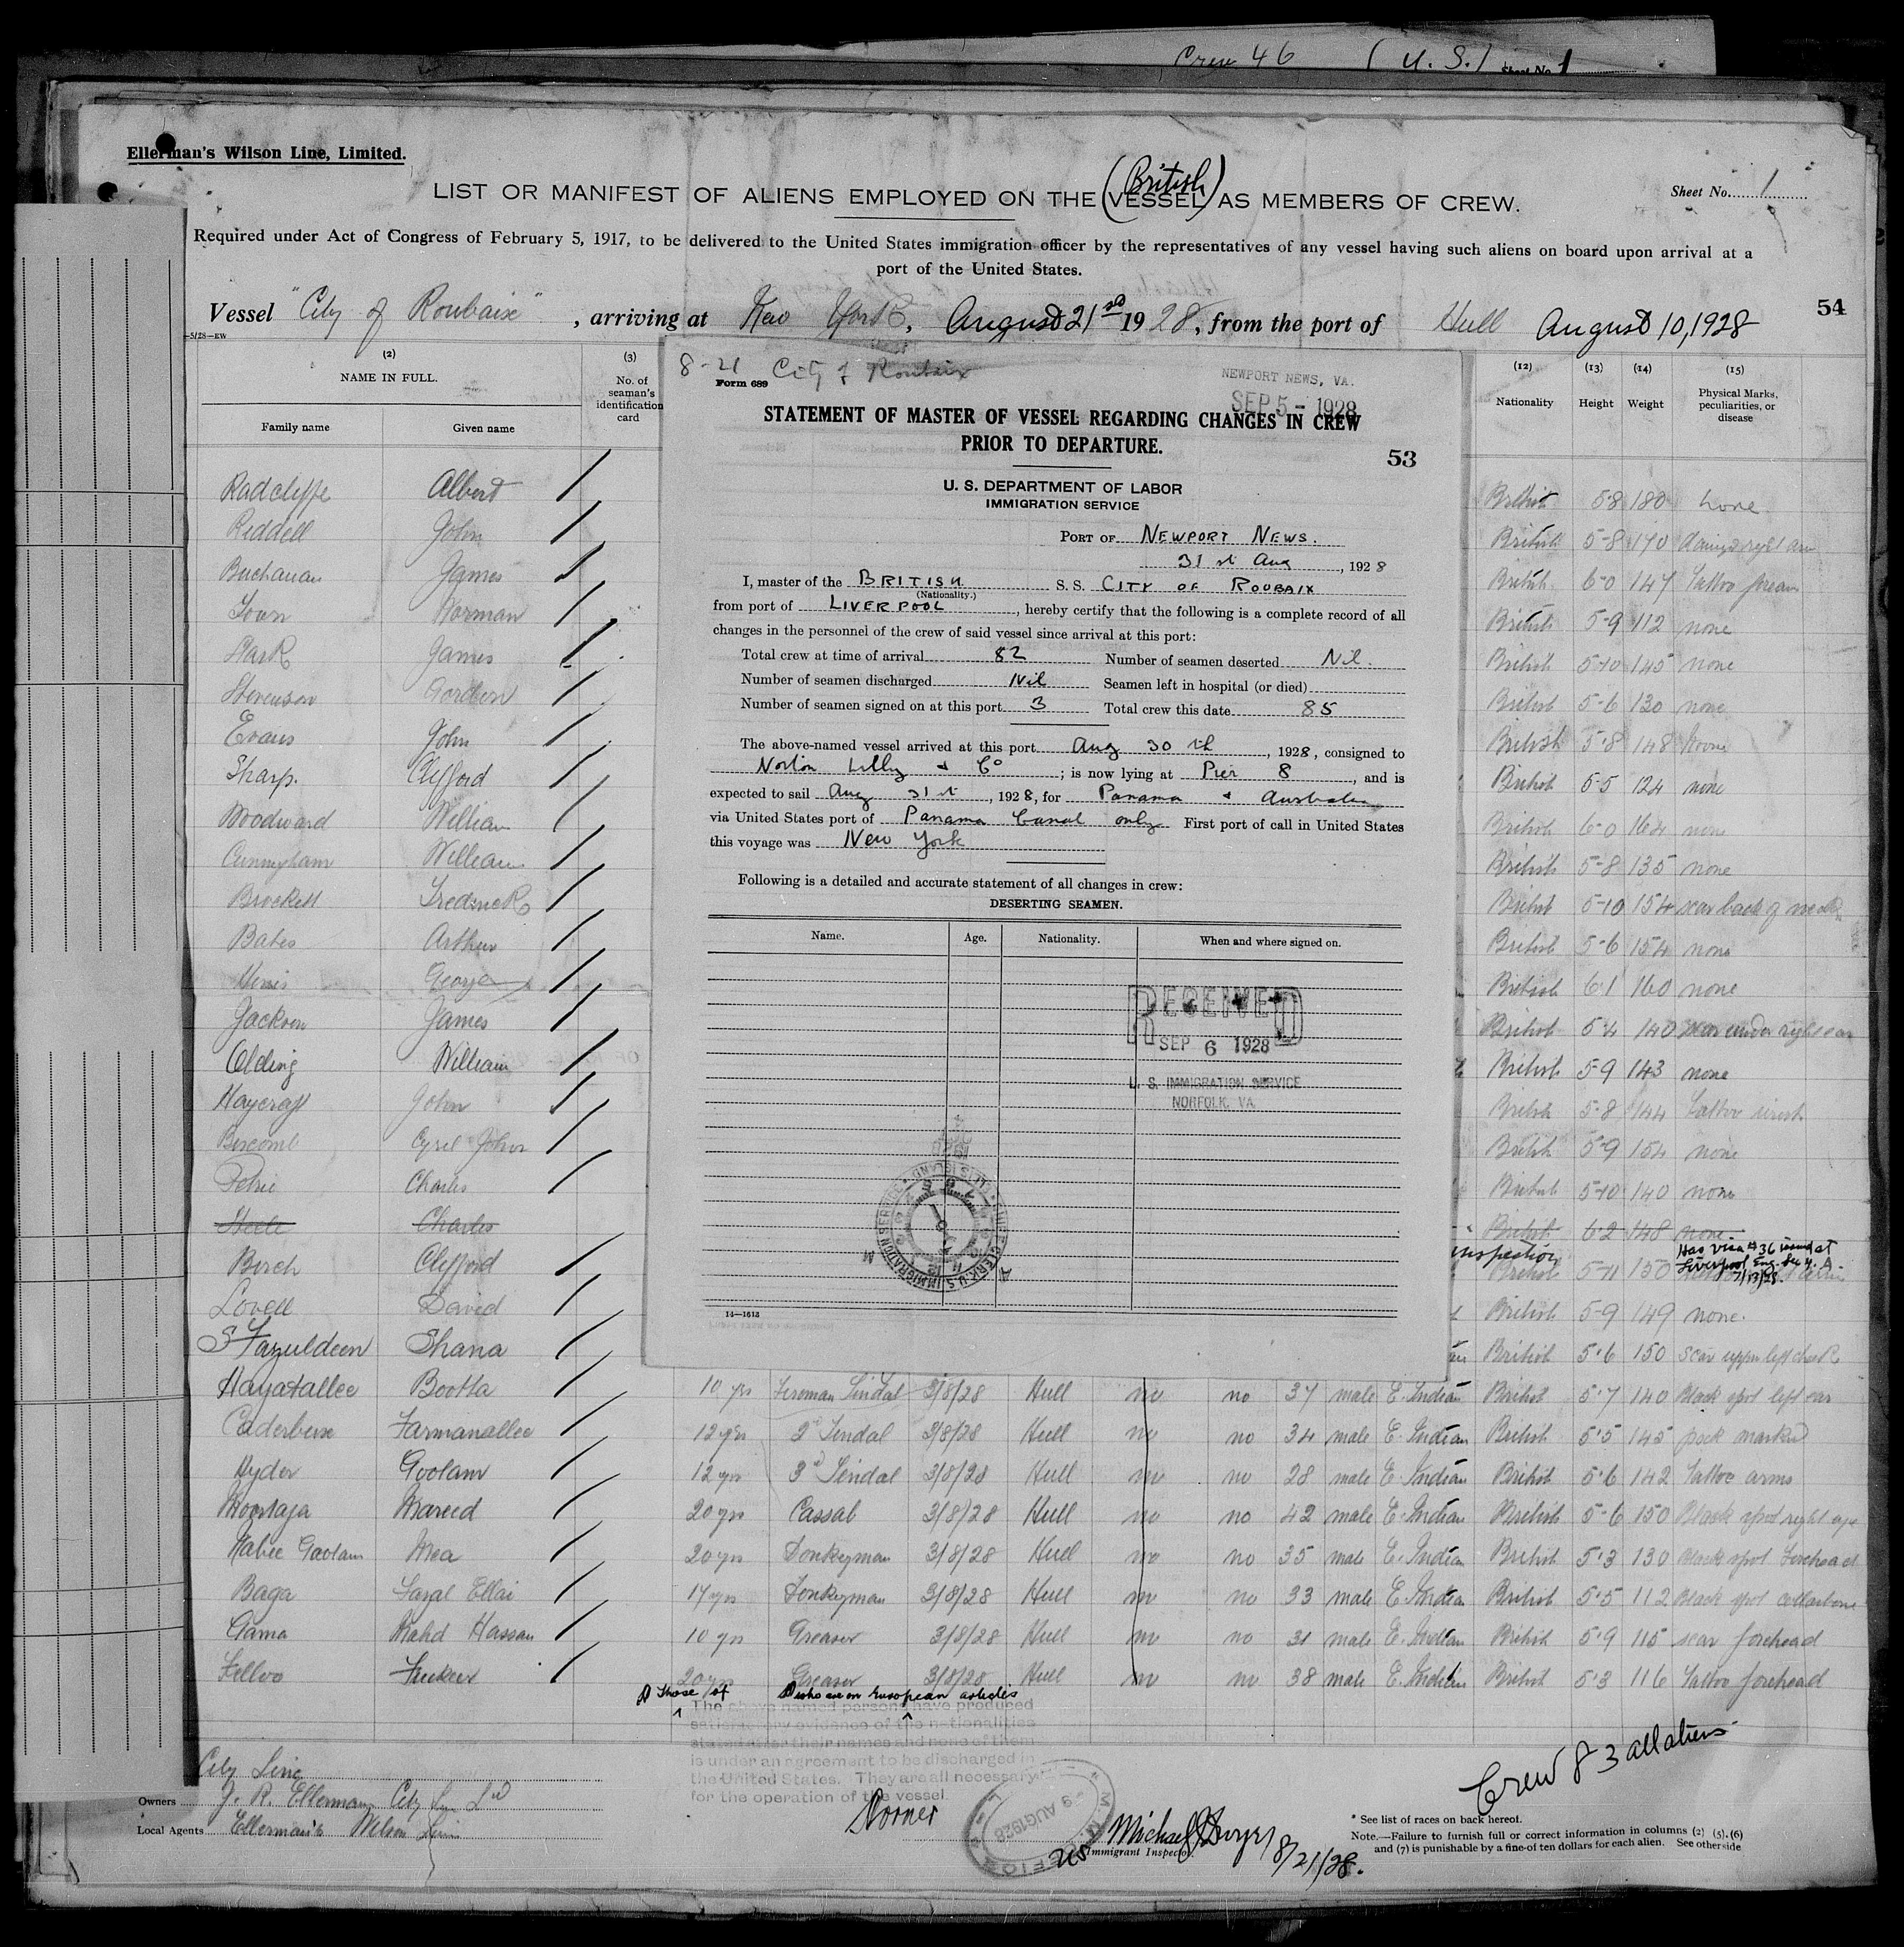 Crew 46 (U.S.) Sheet No. 1
Ellerman's Wilson Line, Limited.
LIST OR MANIFEST OF ALIENS EMPLOYED ON THE (British) VESSEL AS MEMBERS OF CREW.
Sheet No. 1
Required under Act of Congress of February 5, 1917, to be delivered to the United States immigration officer by the representatives of any vessel having such aliens on board upon arrival at a
port of the United States.
54
Vessel "City of Roubaix", arriving at New York, August 21st 1928, from the port of Hull August 10, 1928
5/28—EW
(2) (3) (12) (13) (14) (15)
NAME IN FULL. No. of seaman's identification card Nationality Height Weight Physical Marks, peculiarities, or disease
Family name Given name
8-21 City of Roubaix
Form 689
NEWPORT NEWS, VA.
SEP 5 - 1928
STATEMENT OF MASTER OF VESSEL REGARDING CHANGES IN CREW
PRIOR TO DEPARTURE.
53
U. S. DEPARTMENT OF LABOR
IMMIGRATION SERVICE
PORT OF NEWPORT NEWS.
31st Aug, 1928
I, master of the BRITISH S. S. CITY OF ROUBAIX
(Nationality.)
from port of LIVERPOOL, hereby certify that the following is a complete record of all
changes in the personnel of the crew of said vessel since arrival at this port:
Total crew at time of arrival 82 Number of seamen deserted Nil.
Number of seamen discharged Nil Seamen left in hospital (or died)
Number of seamen signed on at this port 3 Total crew this date 85
The above-named vessel arrived at this port Aug 30th, 1928, consigned to
Norton Lilly & Co; is now lying at Pier 8, and is
expected to sail Aug 31st, 1928, for Panama & Australia
via United States port of Panama Canal only First port of call in United States
this voyage was New York
Following is a detailed and accurate statement of all changes in crew:
DESERTING SEAMEN.
Name. Age. Nationality. When and where signed on.
RECEIVED
SEP 6 1928
U. S. IMMIGRATION SERVICE
NORFOLK, VA.
14—1618
Radcliffe Albert British 5-8 180 none
Riddell John British 5-8 170 right arm
Buchanan James British 6-0 147 Tattoo forearm
Norman British 5-9 112 none
James British 5-10 145 none
Stevenson Gordon British 5-6 130 none
Evans John British 5-8 148 none
Sharp. Clifford British 5-5 124 none
Woodward William British 6-0 164 none
Cunningham William British 5-8 135 none
Brockett Frederick British 5-10 154 scar back of neck
Bates Arthur British 5-6 154 none
George British 6-1 160 none
Jackson James British 5-4 140 scar under right ear
Olding William British 5-9 143 none
Haycraft John British 5-8 144 Tattoo wrist
Cyril John British 5-9 154 none
Petrie Charles British 5-10 140 none
Charles British 6-2 148 none
inspection Has visa #36 issued at
Liverpool Eng.
7/13/28.
Birch Clifford British 5-11 150
Lovell David British 5-9 149 none.
S Fazuldeen Shana British 5'6 150 scar upper left cheek
Hayatallee Bootta 10 yrs Fireman Tindal 3/8/28 Hull no no 37 male E. Indian British 5'7 140 Black spot left ear
Caderbux Farmanallee 12 yrs 2d Tindal 3/8/28 Hull no no 34 male E. Indian British 5'5 145 pock marked
Hyder Goolam 12 yrs 3d Tindal 3/8/28 Hull no no 28 male E. Indian British 5'6 142 Tattoo arms
Moortaja Mareed 20 yrs Cassab 3/8/28 Hull no no 42 male E. Indian British 5-6 150 Black spot right eye
Nabee Goolam Mea 20 yrs Donkeyman 3/8/28 Hull no no 35 male E. Indian British 5'3 130 Black spot forehead
Baga Fazal Ellai 17 yrs Donkeyman 3/8/28 Hull no no 33 male E. Indian British 5'5 112 Black spot collarbone
Gama Mahd Hassan 10 yrs Greaser 3/8/28 Hull no no 31 male E. Indian British 5'9 115 scar forehead
Felloo Fuckeer 20 yrs Greaser 3/8/28 Hull no no 38 male E. Indian British 5'3 116 Tattoo forehead
Those of who are on European articles
The above named persons have produced
satisfactory evidence of the nationalities
stated after their names and none of them
is under an agreement to be discharged in
the United States. They are all necessary
for the operation of the vessel.
Crew 83 all aliens
City Line
Owners J. R. Ellerman City Line Ld
Local Agents Ellerman's Wilson Line
9 AUG 1928
Michael J Dwyer 8/21/28.
Immigrant Inspector.
* See list of races on back hereof.
Note.—Failure to furnish full or correct information in columns (2) (5), (6)
and (7) is punishable by a fine of ten dollars for each alien. See other side